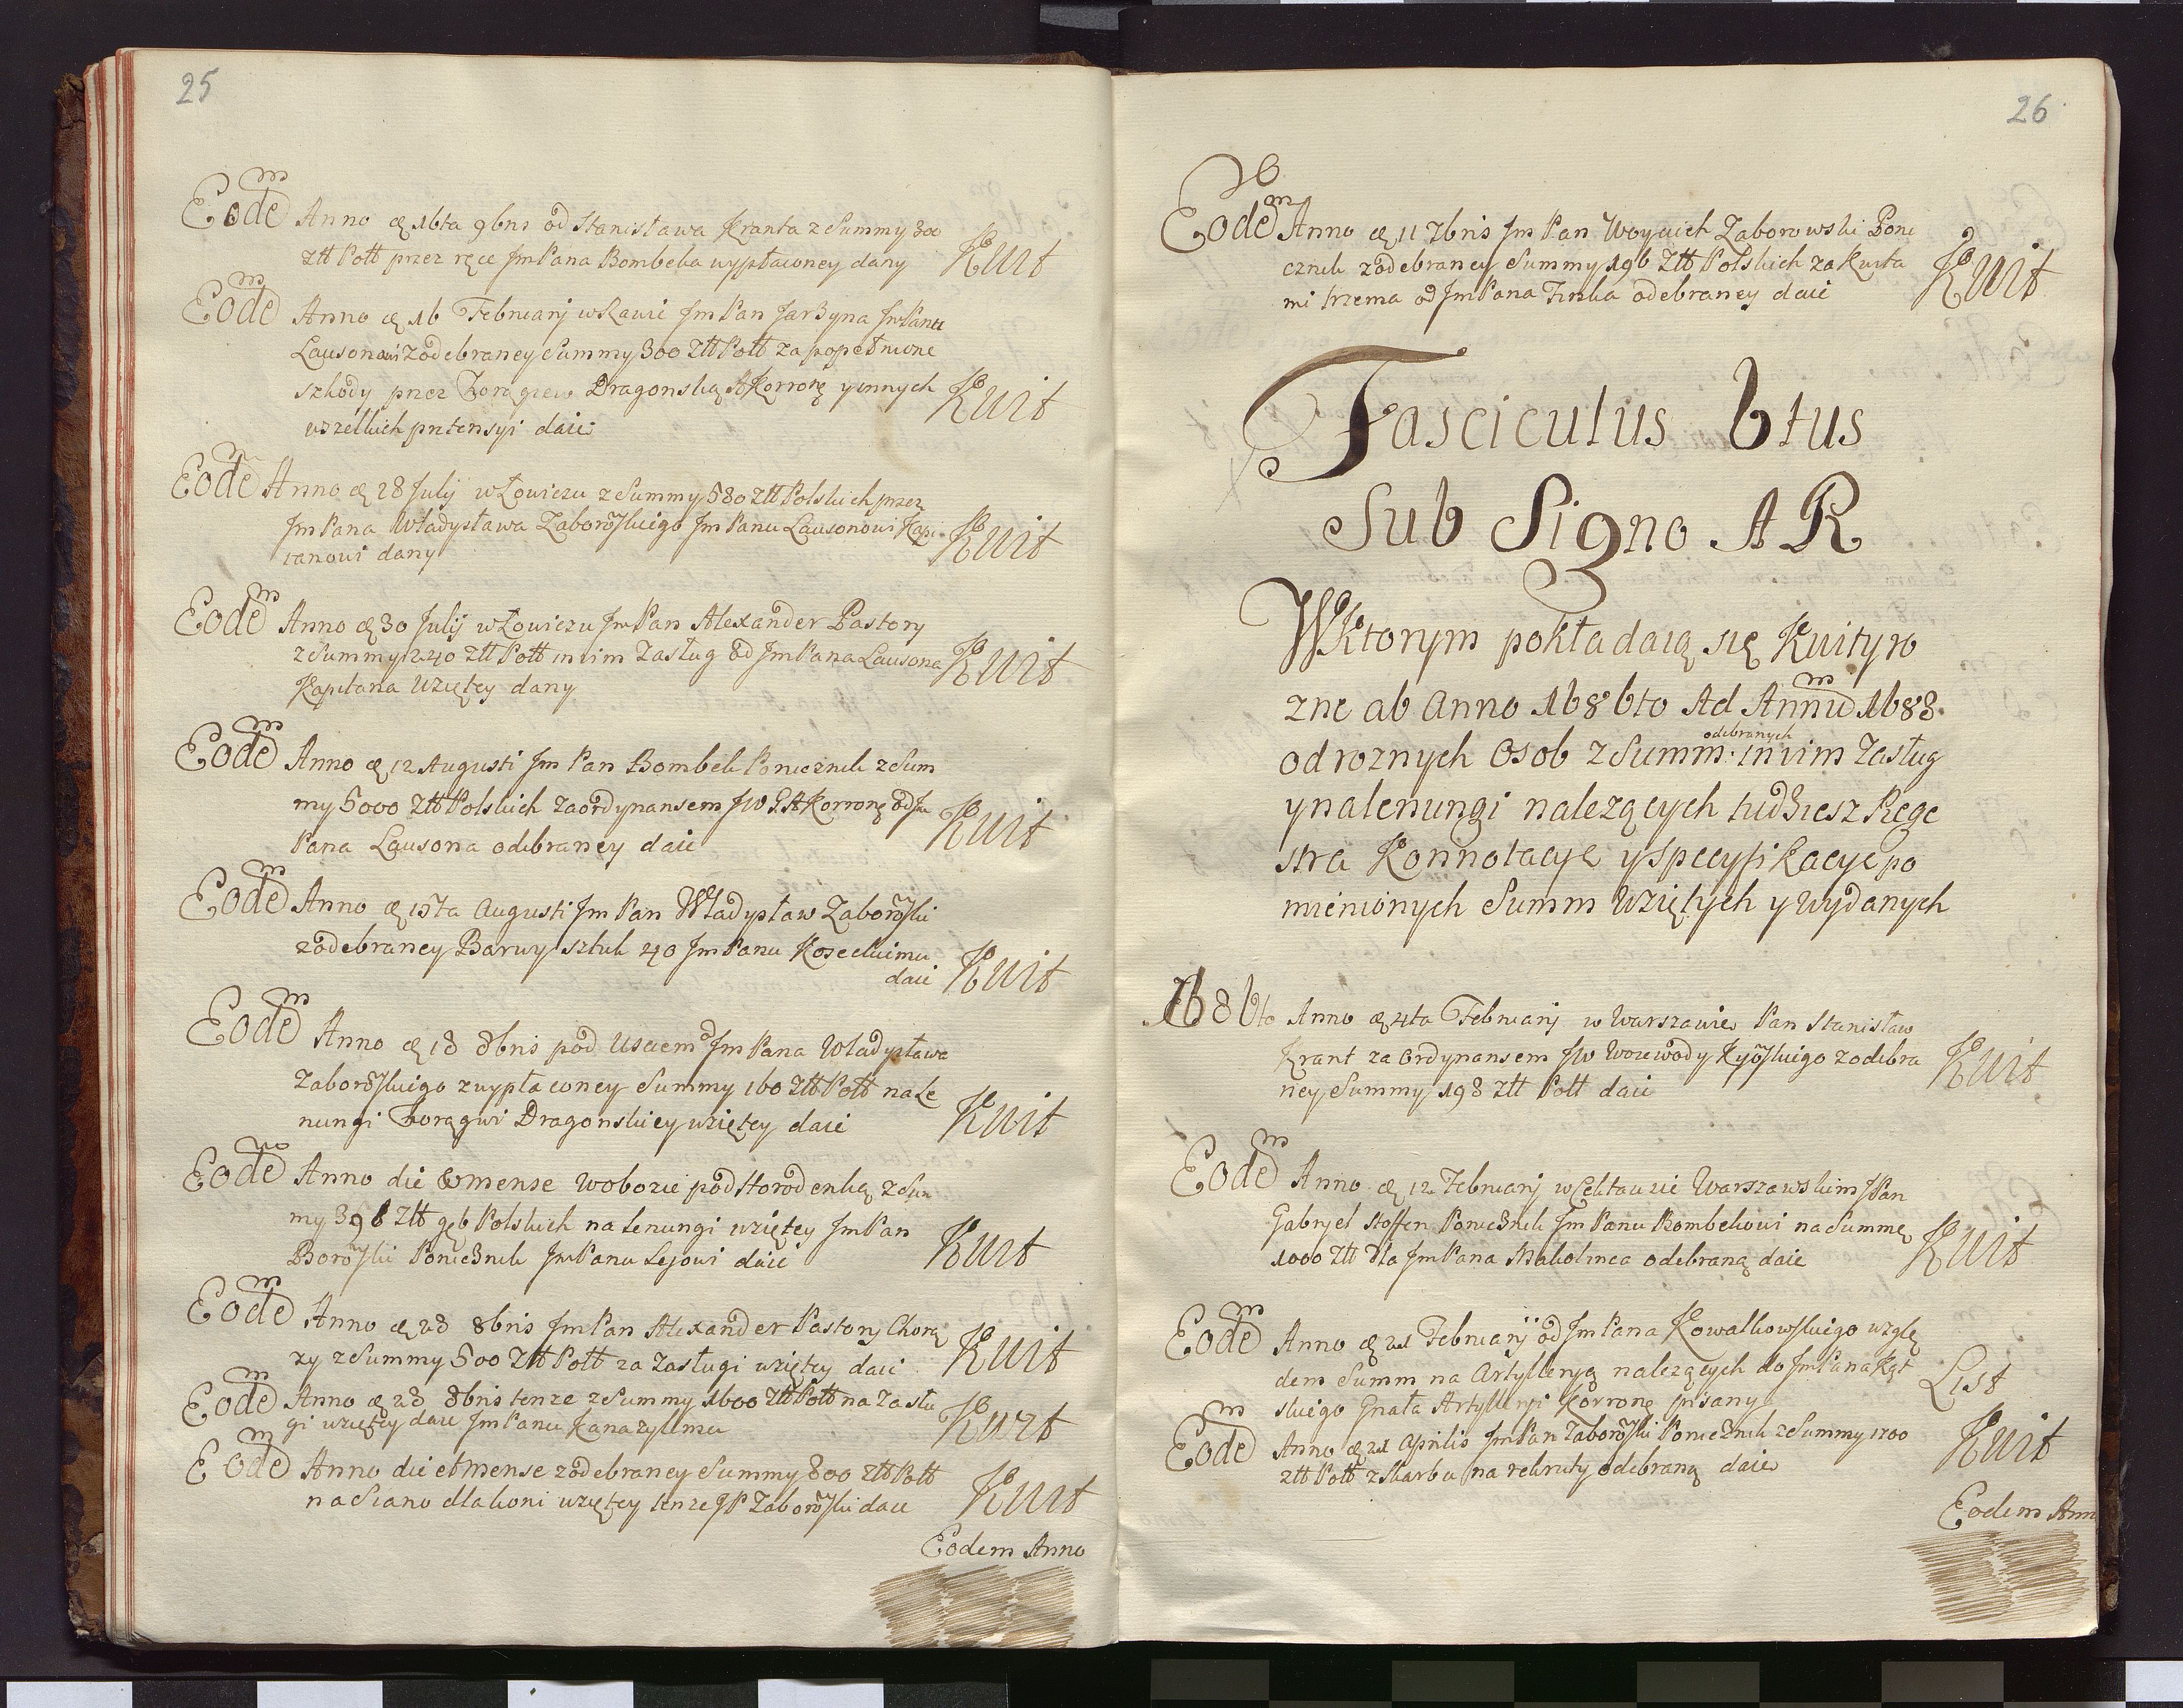 25
Eodem Anno d 16ta 9bris od Stanisława Kranta z Summy 300
Ztt Pott przez ręce Jm Pana Bombeka wypłaconey dany Kwit
Eodem Anno d 16 Februarij w Rawie Jm Pan Jarzyna Jm Panu
Lausonowi z odebraney Summy 300 Ztt Pott za popełnione
szkody przez Horągiew Dragonską A Korronę y innych Kwit
wszelkich pretensyi daie
Eode Anno d 28 Julij w Łowiczu z Summy 580 Ztt Polskich przez
Jm Pana Władysława Zaborowskiego Jm Panu Lausonowi Kapi- Kwit
tanowi dany
Eodem Anno d 30 Julij w Łowiczu Jm Pan Alexander Pastory
z Summy 1240 Ztt Pott in vim Zasług od Jm Pana Lausona Kwit
Kapitana Wziętey dany
Eodem Anno d 12 Augusti Jm Pan Bombek Porucznik z Sum
my 5000 Ztt Polskich za ordynansem JW G A Korronę od Jm
Pana Lausona odebraney daie Kwit
Eodem Anno d 15ta Augusti Jm Pan Władysław Zaborowski
z odebraney Barwy sztuk 40 Jm Panu Koseckiemu
daie Kwit
Eodem Anno d 18 8bris pod Usciem Jm Pana Władysława
Zaborowskiego z wypłaconey Summy 160 Ztt Pott na Le
nungi Horągwi Dragonskiey wziętey daie Kwit
Eodem Anno die & mense w obozie pod Horodenką z Sum
my 396 Ztt gęb Polskich na Lenungi wziętey Jm Pan
Borowski Porucznik Jm Panu Lejowi daie Kwit
Eodem Anno d 28 8bris Jm Pan Alexander Pastorj Chorą
zy z Summy 500 Ztt Pott za Zasługi wziętey daie Kwit
Eodem Anno d 28 8bris tenze z Summy 1600 Ztt Pott na Zasłu
gi wziętey daie Jm Panu Kanazylmeu Kwit
Eodem Anno die et mense z odebraney Summy 800 Ztt Pott
na Siano dla koni wziętey tenze JP Zaborowski daie Kwit
Eodem Anno
26
Eodem Anno d 11 7bris Jm Pan Woyciech Zaborowski Poru
cznik z odebraney Summy 196 Ztt Polskich za Kurta
mi trzema od Jm Pana Finka odebraney daie Kwit
Fasciculus 6tus
Sub Signo AR
W Ktorym pokładaią się Kwity ro
zne ab Anno 1686to Ad Annum 1688.
odebranych
od roznych Osob z Summ in vim Zasług
y na lenungi nalezących tudziesz Rege
stra Konnotacye y Specyfikacye po
mienionych Summ Wziętych y Wydanych
1686to Anno d 4ta Februarij w Warszawie Pan Stanisław
Krant za Ordynansem JW Woiewody Kyowskiego z odebra
ney Summy 198 Ztt Pott daie Kwit
Eodem Anno d 12 Februarij w Cekhauzie Warszawskim JPan
Gabryel Stoffen Porucznik Jm Panu Bombekowi na Summę
1000 Ztt dla Jm Pana Makolmea odebraną daie Kwit
Eodem Anno d 21 Februarij od Jm Pana Kowalkowskiego wzglę
dem Summ na Artylleryą nalezących do Jm Pana Kąt
skiego Gnała Artylleryi Korronę pisany List
Eodem Anno d 21 Aprilis Jm Pan Zaborowski Porucznik z Summy 1700
Ztt Pott z Skarbu na rekruty odebraną daie Kwit
Eodem Ann